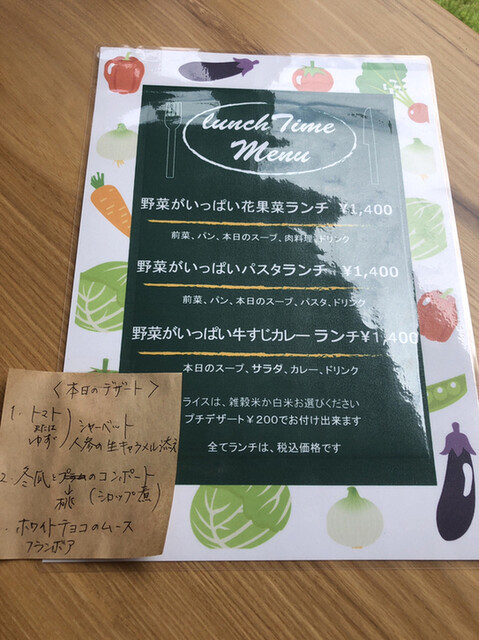 lunch Time
Menu
野菜がいっぱい花果菜ランチ ¥1,400
前菜、パン、本日のスープ、肉料理、ドリンク
野菜がいっぱいパスタランチ ¥1,400
前菜、パン、本日のスープ、パスタ、ドリンク
野菜がいっぱい牛すじカレー ランチ¥1,400
本日のスープ、サラダ、カレー、ドリンク
ライスは、雑穀米か白米お選びください
プチデザート¥200でお付け出来ます
全てランチは、税込価格です
<本日のデザート>
1. トマト
または
ゆず
シャーベット
人参の生キャラメル添え
2. 冬瓜と のコンポート
桃 (シロップ煮)
ホワイトチョコのムース
フランボア